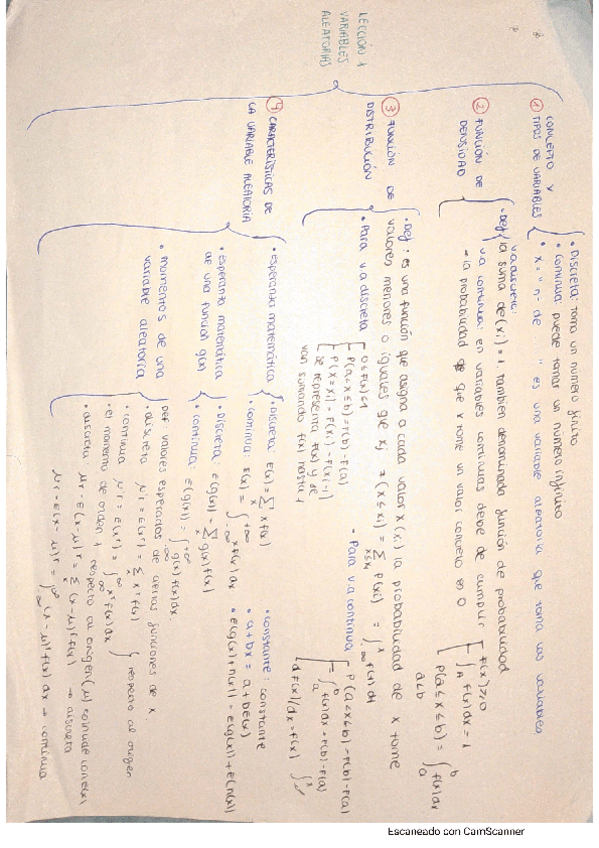 LECCIÓN 1
VARIABLES
ALEATORIAS
① CONCEPTO Y
TIPOS DE VARIABLES
• Discreta: toma un numero finito
• Continua puede tomar un numero infinito
• X = " nº de " es una variable aleatoria que toma las variables
② FUNCIÓN DE
DENSIDAD
• Def
v.a discreta:
la suma de (xi) = 1. También denominada función de probabilidad
v.a continua: en variables continuas debe de cumplir
- la probabilidad de que x tome un valor concreto es 0
f(x) ≥ 0
∫A f(x) dx = 1
P(a ≤ x ≤ b) = ∫a^b f(x) dx
a ≤ b
③ FUNCIÓN DE
DISTRIBUCIÓN
• Def: es una función que asigna a cada valor x(xi) la probabilidad de x tome
valores menores o iguales que xi
• Para v.a discreta
0 ≤ F(x) ≤ 1
P(a < x ≤ b) = F(b) - F(a)
P(X = xi) = F(xi) - F(xi-1)
se representa f(x) y se
van sumando f(x) hasta 1
• Para v.a continua
P(a < x < b) = F(b) - F(a)
∫a^b f(x) dx = F(b) - F(a)
dF(x)/dx = f(x)
④ CARACTERÍSTICAS DE
LA VARIABLE ALEATORIA
• esperanza matemática
• Discreta: E(x) = Σx x f(x)
• continua: E(x) = ∫-∞^+∞ x f(x) dx
• constante: constante
• a + bx = a + bE(x)
• E(g(x) + h(x)) = E(g(x)) + E(h(x))
• esperanza matemática
de una función g(x)
• Discreta: E(g(x)) = Σx g(x) f(x)
• continua: E(g(x)) = ∫-∞^+∞ g(x) f(x) dx
• momentos de una
variable aleatoria
Def: valores esperados de ciertas funciones de x.
• discreta μ'r = E(x^r) = Σx x^r f(x)
• continua μ'r = E(x^r) = ∫-∞^∞ x^r f(x) dx
respecto al origen
• el momento de orden 1 respecto al origen (μ) coincide con E(x)
• discreta: μr = E(x - μ)^r = Σx (x - μ)^r f(x) → discreta
μr = E(x - μ)^r = ∫-∞^∞ (x - μ)^r f(x) dx → continua
Escaneado con CamScanner